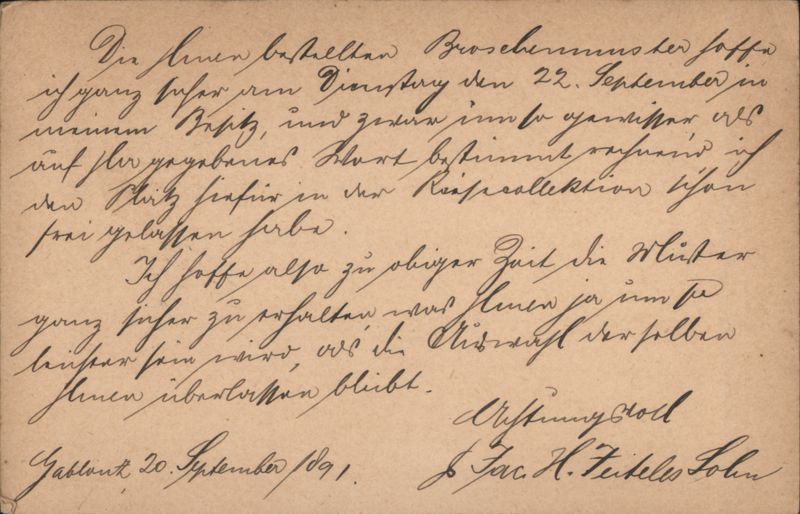 Die Ihnen bestellten Broschenmuster hoffe
ich ganz sicher am Dienstag den 22. September in
meinem Besitz, und zwar um so gewisser als
auf Ihr gegebenes Wort bestimmt rechnend ich
den Platz hiefür in der Reisecollektion schon
frei gelassen habe.
Ich hoffe also zu obiger Zeit die Muster
ganz sicher zu erhalten, was Ihnen ja um so
leichter sein wird, als die Auswahl derselben
Ihnen überlassen bleibt.
Achtungsvoll
Gablonz, 20. September 1891.
Jac. H. Feiteles Sohn